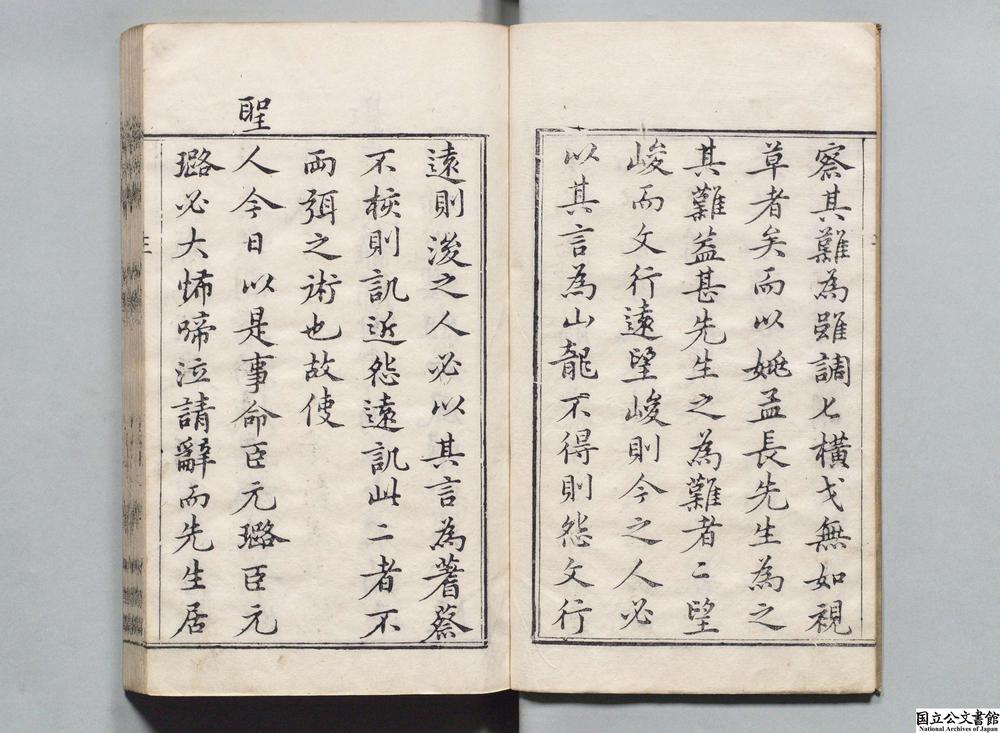 察其難為雖調七橫戈無如視
草者矣而以姚孟長先生為之
其難益甚先生之為難者二望
峻而文行遠望峻則今之人必
以其言為山龍不得則怨文行
遠則後之人必以其言為蓍蔡
不核則訊近怨遠訊此二者不
兩弭之術也故使
聖人今日以是事命臣元璐臣元
璐必大怖啼泣請辭而先生居
三
国立公文書館
National Archives of Japan